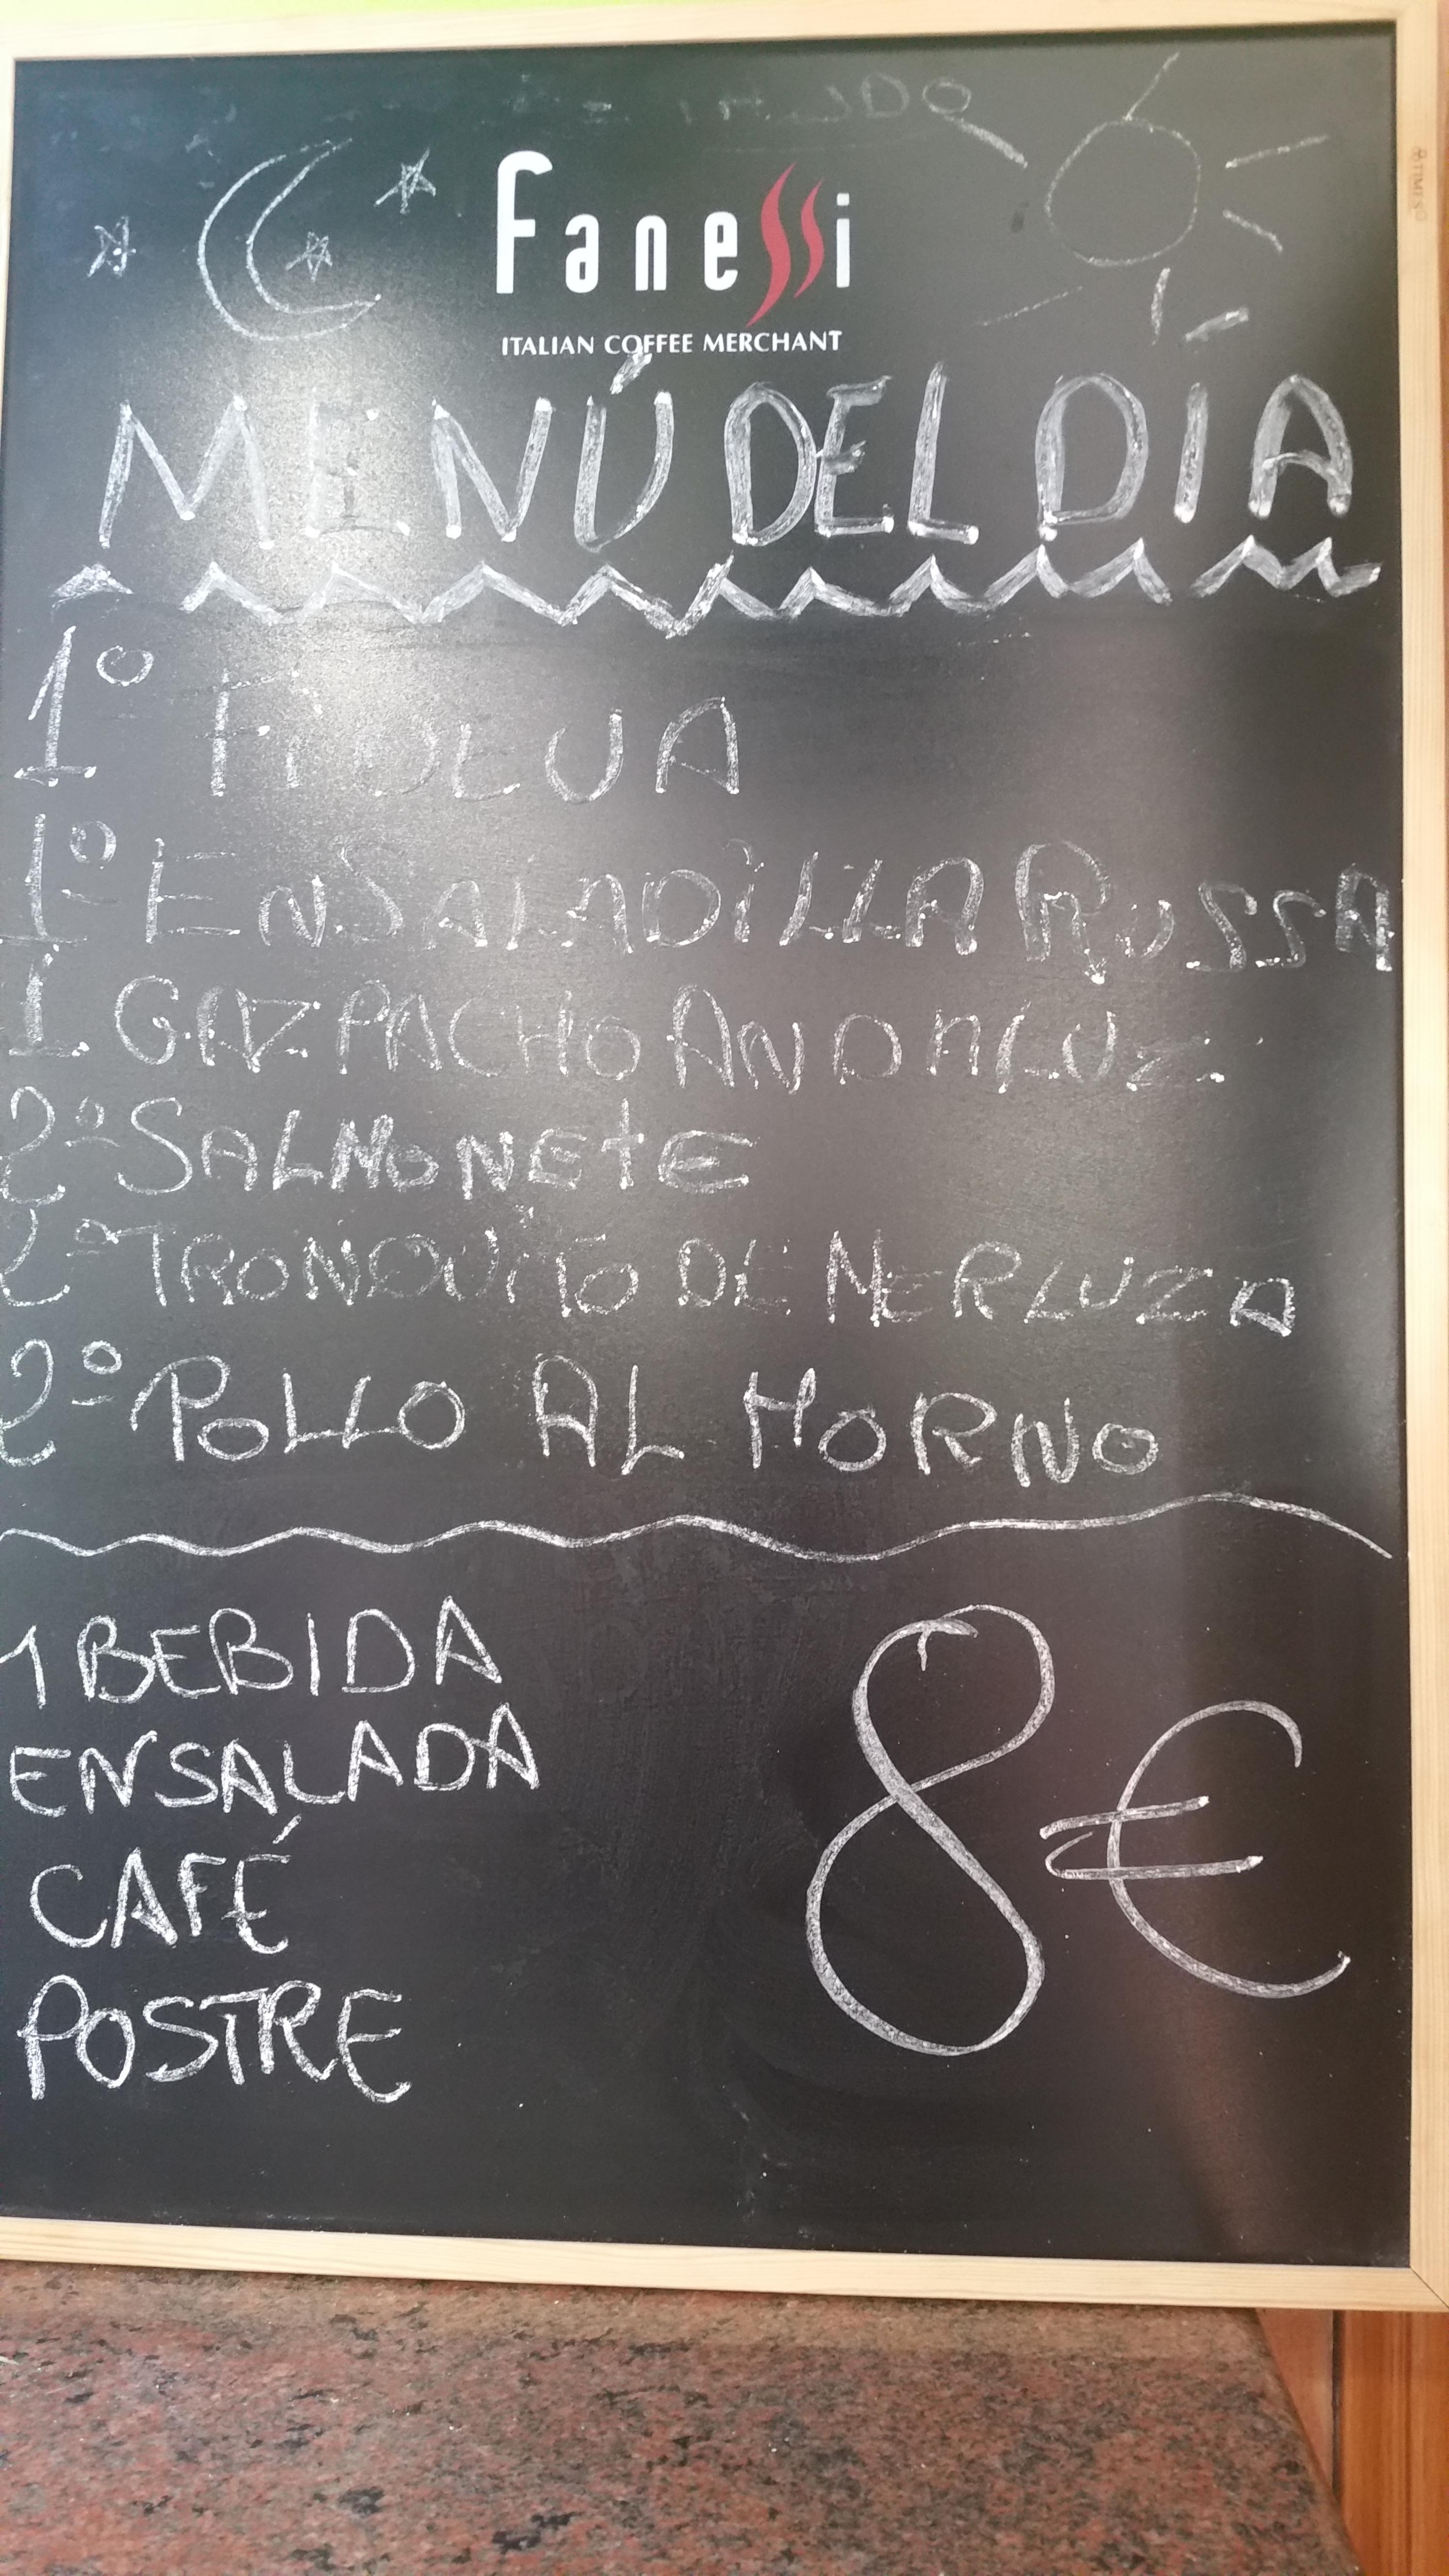 Fanessi
ITALIAN COFFEE MERCHANT
MENÚ DEL DÍA
1º
1º ENSALADILLA RUSSA
1 GAZPACHO ANDALUZ
2º SALMONETE
2º TRONQUITO DE MERLUZA
2º POLLO AL HORNO
1 BEBIDA
ENSALADA
CAFÉ
POSTRE
8€